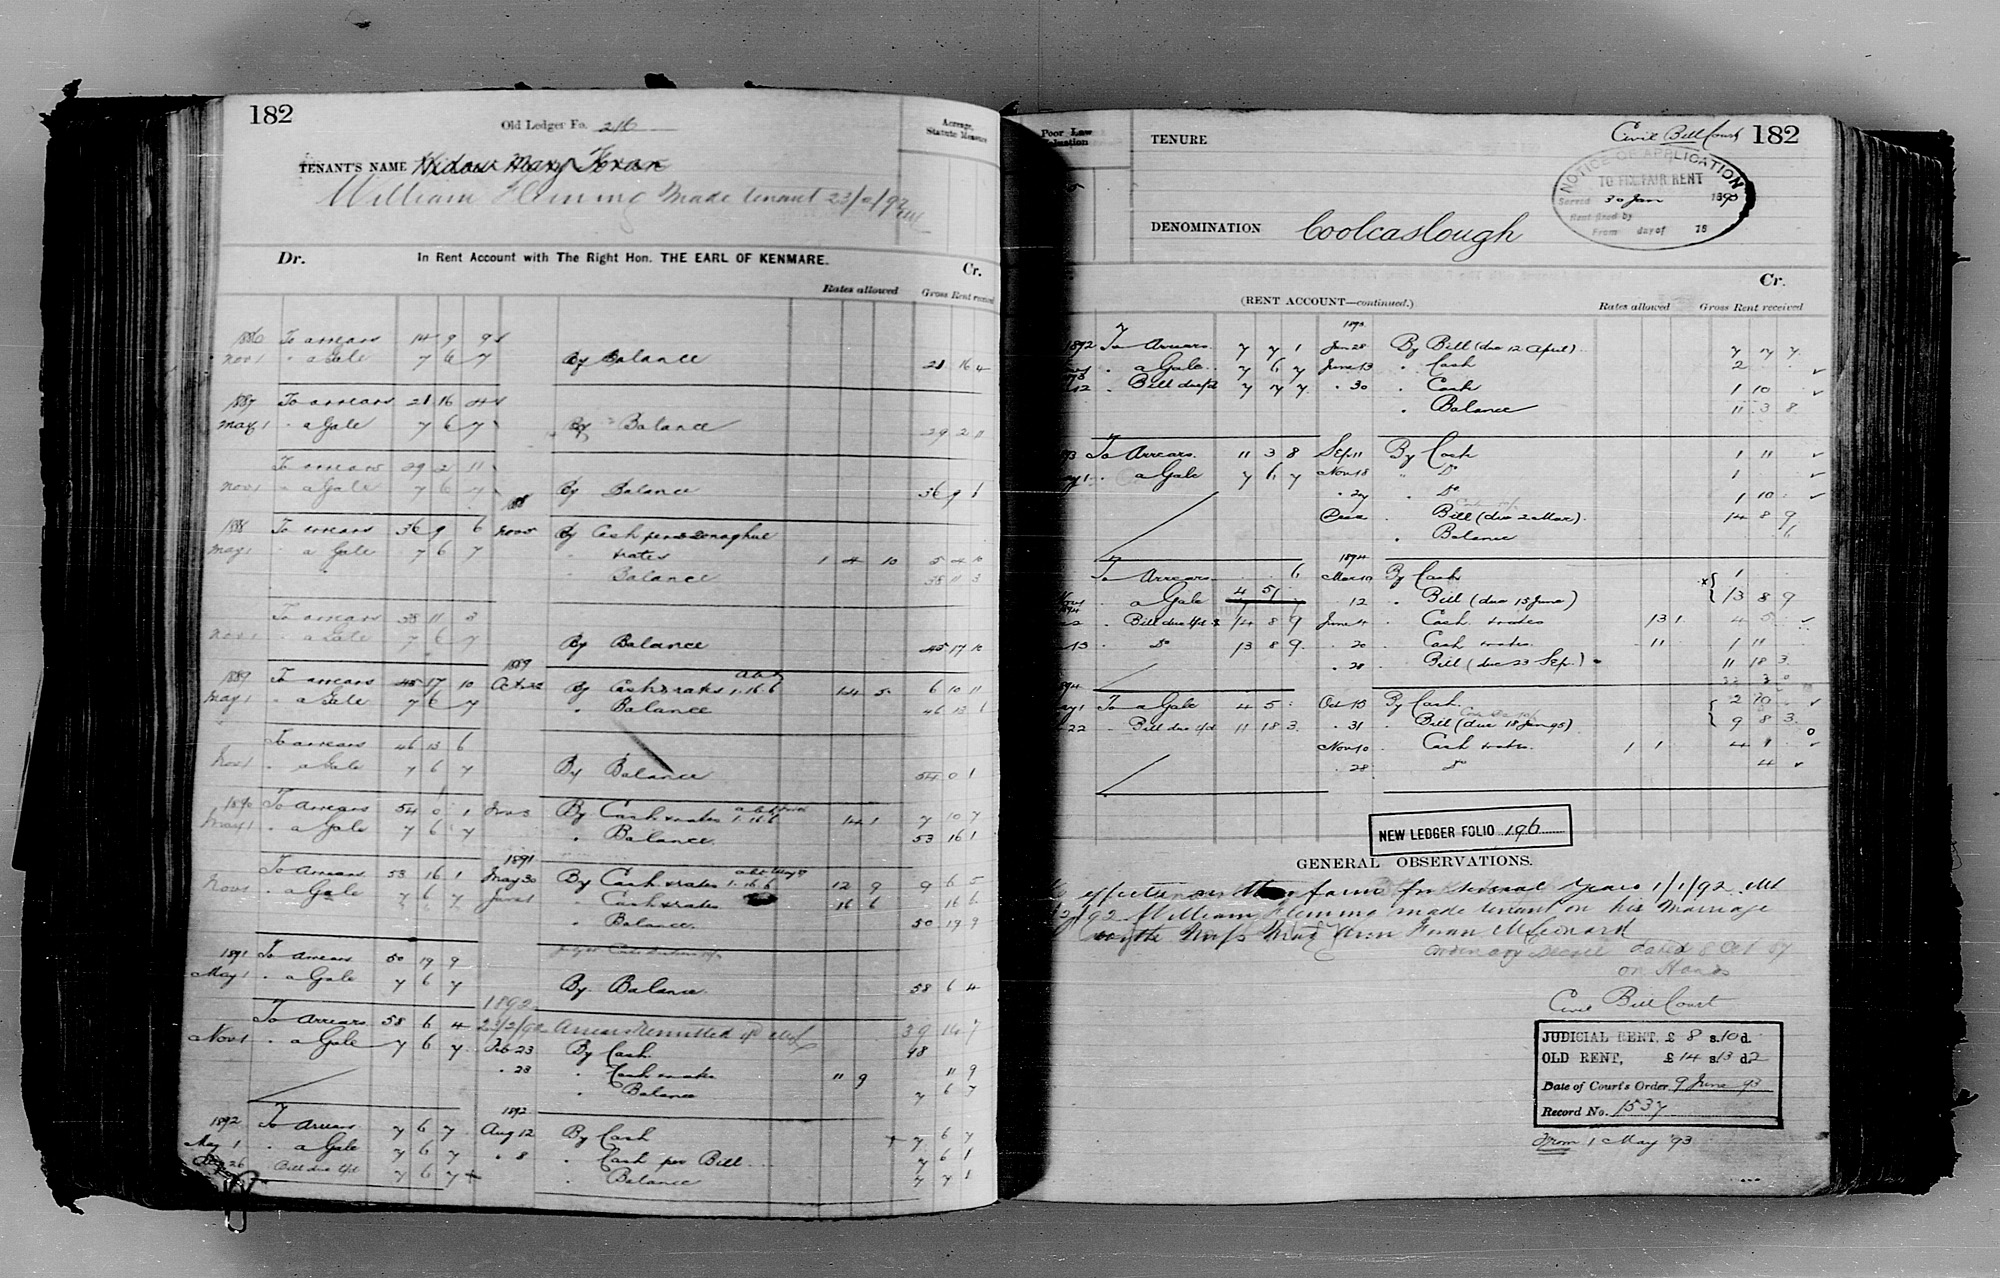 182
Old Ledger Fo. 216
Acreage, Statute Measure
TENANT'S NAME Widow Mary Foran
William Fleming made tenant 23/2/92
Dr. In Rent Account with The Right Hon. THE EARL OF KENMARE. Cr.
Rates allowed Gross Rent received
1886 To arrears 14 9 9
Nov 1 " a Gale 7 6 7 By Balance 21 16 4
1887 To arrears 21 16 4
May 1 " a Gale 7 6 7 By Balance 29 2 11
To arrears 29 2 11
Nov 1 " a Gale 7 6 7 By Balance 36 9 6
1888
1888 To arrears 36 9 6 Nov 5 By Cash per Donaghue
May 1 " a Gale 7 6 7 rates 1 4 10 5 4 10
" Balance 38 11 3
To arrears 38 11 3
Nov 1 " a Gale 7 6 7 By Balance 45 17 10
1889
1889 To arrears 45 17 10 Oct 22 By Cash & rates 1.16.6 14 5 6 10 11
May 1 " a Gale 7 6 7 " Balance 46 13 6
To arrears 46 13 6
Nov 1 " a Gale 7 6 7 By Balance 54 0 1
1890 To arrears 54 0 1 By Cash & rates 1.16.6 14 1 7 10 7
May 1 " a Gale 7 6 7 " Balance 53 16 1
1891
To arrears 53 16 1 May 30 By Cash & rates 1.16.6 12 9 9 6 5
Nov 1 " a Gale 7 6 7 June 1 " Cash & rates 16 6 16 6
" Balance 50 19 9
1891 To arrears 50 19 9
May 1 " a Gale 7 6 7 By Balance 58 6 4
1892
To Arrears 58 6 4 23/2/92 Arrears remitted 39 14 7
Nov 1 " a Gale 7 6 7 Feb 23 By Cash 18
" 23 " Cash & rates 11 9 11 9
" Balance 7 6 7
1892
1892 To arrears 7 6 7 Aug 12 By Cash 7 6 7
May 1 " a Gale 7 6 7 " 8 " Cash per Bill 7 6 1
26 Bill due 7 6 7 " Balance 7 7 1
Poor Law Valuation
TENURE
Civil Bill Court 182
NOTICE OF APPLICATION
TO FIX FAIR RENT
Served 30 Jan 1890
Rent fixed by
From day of 18
DENOMINATION Coolcaslough
Cr.
(RENT ACCOUNT—continued.) Rates allowed Gross Rent received
1893
1892 To Arrears 7 7 1 Jan 28 By Bill (due 12 April) 7 7 7
" a Gale 7 6 7 June 13 " Cash 2
12 " Bill due 7 7 7 " 30 " Cash 1 10
" Balance 11 3 8
To Arrears 11 3 8 Sep 11 By Cash 1 11
" a Gale 7 6 7 Nov 18 " Do 1
" 27 " Do 1 10
" Bill (due 2 Mar) 14 8 9
" Balance 6
1894
To Arrears 6 Mar 10 By Cash 1
" a Gale 4 5 12 " Bill (due 15 June) 13 8 9
" Bill due 14 8 9 June 4 " Cash & rates 13 1 4 5
13 " Do 13 8 9 " 20 " Cash & rates 11 1 11
" 28 " Bill (due 23 Sep.) 11 18 3
To a Gale 4 5 Oct 13 By Cash 2 10
22 " Bill due 11 18 3 " 31 " Bill (due 18 Jan 95) 9 8 3
Nov 10 " Cash & rates 1 1 4 9
" 28 " Do 4
NEW LEDGER FOLIO 196
GENERAL OBSERVATIONS.
effects on the farm for several years 1/1/92
92 William Fleming made tenant on his marriage
Ordinary decree dated 8 Oct 87
on Hands
Civil Bill Court
JUDICIAL RENT, £ 8 s. 10 d.
OLD RENT, £ 14 s. 13 d. 2
Date of Court's Order 9 June 93
Record No. 1537
From 1 May '93